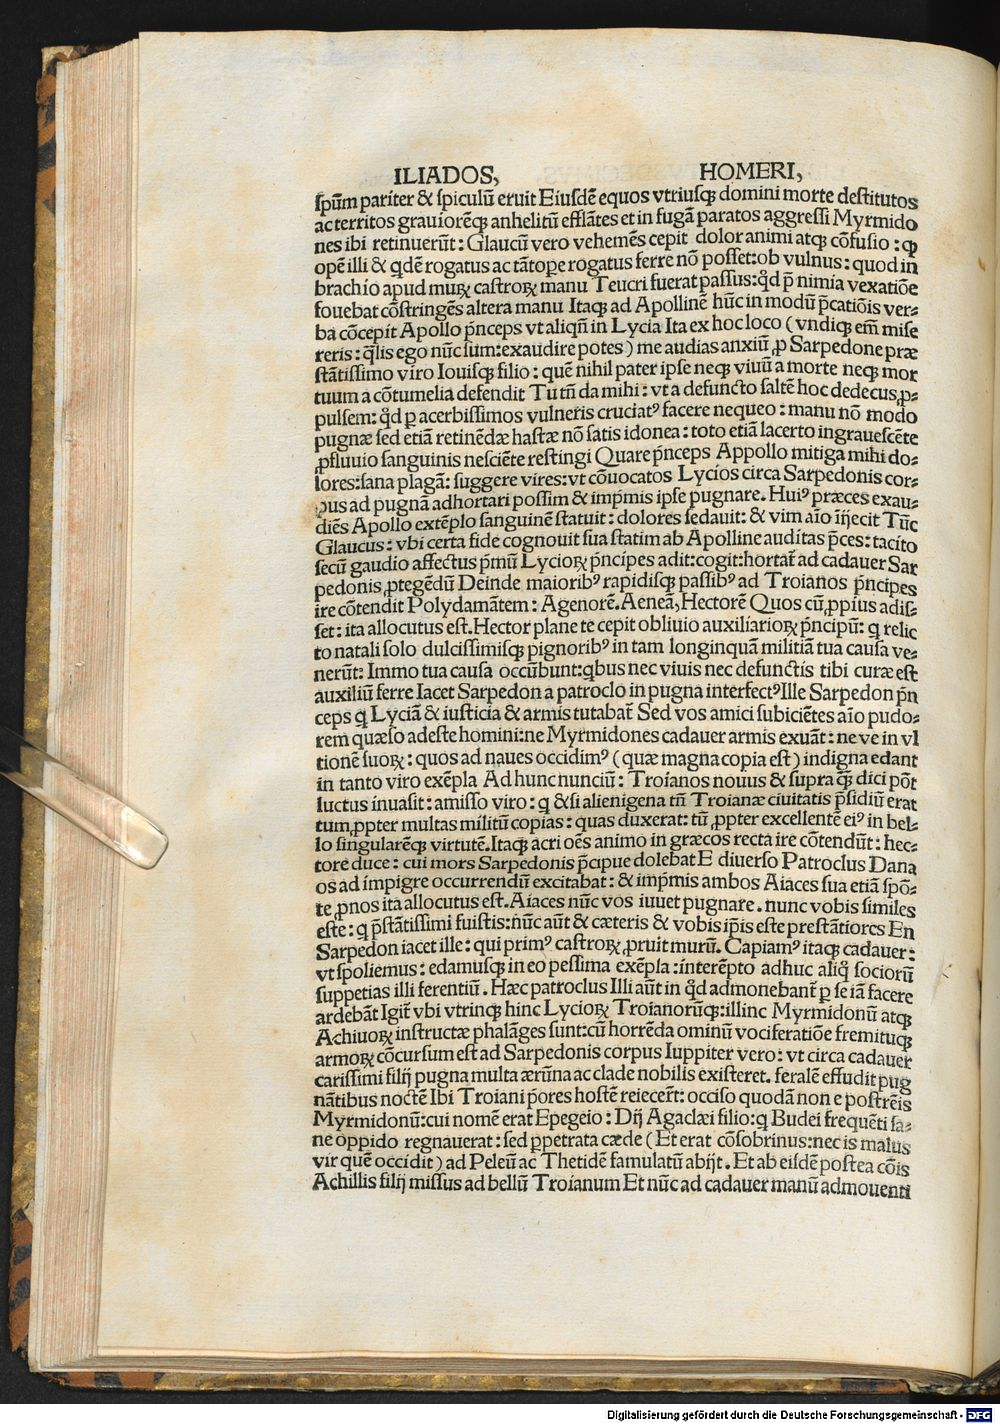 ILIADOS, HOMERI,
spūm pariter & spiculū eruit Eiusdē equos vtriusqꝫ domini morte destitutos
ac territos grauiorēqꝫ anhelitū efflātes et in fugā paratos aggressi Myrmido
nes ibi retinuerūt: Glaucū vero vehemēs cepit dolor animi atqꝫ cōfusio: ꝙ
opē illi & qdē rogatus ac tātoꝑe rogatus ferre nō posset: ob vulnus: quod in
brachio apud muꝝ castroꝝ manu Teucri fuerat passus: qd̄ p̄ nimia vexatiōe
fouebat cōstringēs altera manu Itaqꝫ ad Apollinē hūc in modū p̄catiōis ver⸗
ba cōcepit Apollo p̄nceps vt aliqn̄ in Lycia Ita ex hoc loco (vndiqꝫ em̄ mise
reris: q̄lis ego nūc sum: exaudire potes) me audias anxiū ꝓ Sarpedone præ
stātissimo viro Iouisqꝫ filio: quē nihil pater ipse neqꝫ viuū a morte neqꝫ mor
tuum a cōtumelia defendit Tu tn̄ da mihi: vt a defuncto saltē hoc dedecus ꝓ⸗
pulsem: qd̄ ꝑ acerbissimos vulneris cruciatꝰ facere nequeo: manu nō modo
pugnæ sed etiā retinēdæ hastæ nō satis idonea: toto etiā lacerto ingrauescēte
ꝓfluuio sanguinis nesciēte restingi Quare p̄nceps Appollo mitiga mihi do⸗
lores: sana plagā: suggere vires: vt cōuocatos Lycios circa Sarpedonis cor⸗
pus ad pugnā adhortari possim & imp̄mis ipse pugnare. Huiꝰ præces exau⸗
diēs Apollo extēplo sanguinē statuit: dolores sedauit: & vim aīo iniecit Tūc
Glaucus: vbi certa fide cognouit sua statim ab Apolline auditas p̄ces: tacito
secū gaudio affectus p̄mū Lycioꝝ p̄ncipes adit: cogit: hortat̄ ad cadauer Sar
pedonis ꝓtegēdū Deinde maioribꝰ rapidisqꝫ passibꝰ ad Troianos p̄ncipes
ire cōtendit Polydamātem: Agenorē. Aeneā, Hectorē Quos cū ꝓpius adis⸗
set: ita allocutus est. Hector plane te cepit obliuio auxiliarioꝝ p̄ncipū: q relic
to natali solo dulcissimisqꝫ pignoribꝰ in tam longinquā militiā tua causa ve⸗
nerūt: Immo tua causa occūbunt: qbus nec viuis nec defunctis tibi curæ est
auxiliū ferre Iacet Sarpedon a patroclo in pugna interfectꝰ Ille Sarpedon p̄n
ceps q Lyciā & iusticia & armis tutabat̄ Sed vos amici subiciētes aīo pudo⸗
rem quæso adeste homini: ne Myrmidones cadauer armis exuāt: ne ve in vl
tionē suoꝝ: quos ad naues occidimꝰ (quæ magna copia est) indigna edant
in tanto viro exēpla Ad hunc nunciū: Troianos nouus & supra qꝫ dici pōt
luctus inuasit: amisso viro: q & si alienigena tn̄ Troianæ ciuitatis p̄sidiū erat
tum ꝓpter multas militū copias: quas duxerat: tū ꝓpter excellentē eiꝰ in bel⸗
lo singularēqꝫ virtutē. Itaqꝫ acri oēs animo in græcos recta ire cōtendūt: hec⸗
tore duce: cui mors Sarpedonis p̄cipue dolebat E diuerso Patroclus Dana
os ad impigre occurrendū excitabat: & imp̄mis ambos Aiaces sua etiā spō⸗
te ꝓnos ita allocutus est. Aiaces nūc vos iuuet pugnare. nunc vobis similes
este: q p̄stātissimi fuistis: nūc aūt & cæteris & vobis ip̄is este prestātiores En
Sarpedon iacet ille: qui primꝰ castroꝝ ꝓruit murū. Capiamꝰ itaqꝫ cadauer:
vt spoliemus: edamusqꝫ in eo pessima exēpla: interēpto adhuc aliq̊ sociorū
suppetias illi ferentiū. Hæc patroclus Illi aūt in qd̄ admonebant̄ ꝑ se iā facere
ardebāt Igit̄ vbi vtrinqꝫ hinc Lycioꝝ Troianorūqꝫ: illinc Myrmidonū atqꝫ
Achiuoꝝ instructæ phalāges sunt: cū horrēda ominū vociferatiōe fremituqꝫ
armoꝝ cōcursum est ad Sarpedonis corpus Iuppiter vero: vt circa cadauer
carissimi filij pugna multa ærūna ac clade nobilis existeret. feralē effudit pug
nātibus noctē Ibi Troiani p̄ores hostē reiecer̄t: occiso quodā non e postrēis
Myrmidonū: cui nomē erat Epegeio: Dij Agaclæi filio: q Budei frequēti sa⸗
ne oppido regnauerat: sed ꝑpetrata cæde (Et erat cōsobrinus: nec is malus
vir quē occidit) ad Peleū ac Thetidē famulatū abijt. Et ab eisdē postea cōis
Achillis filij missus ad bellū Troianum Et nūc ad cadauer manū admouenti
Digitalisierung gefördert durch die Deutsche Forschungsgemeinschaft - DFG